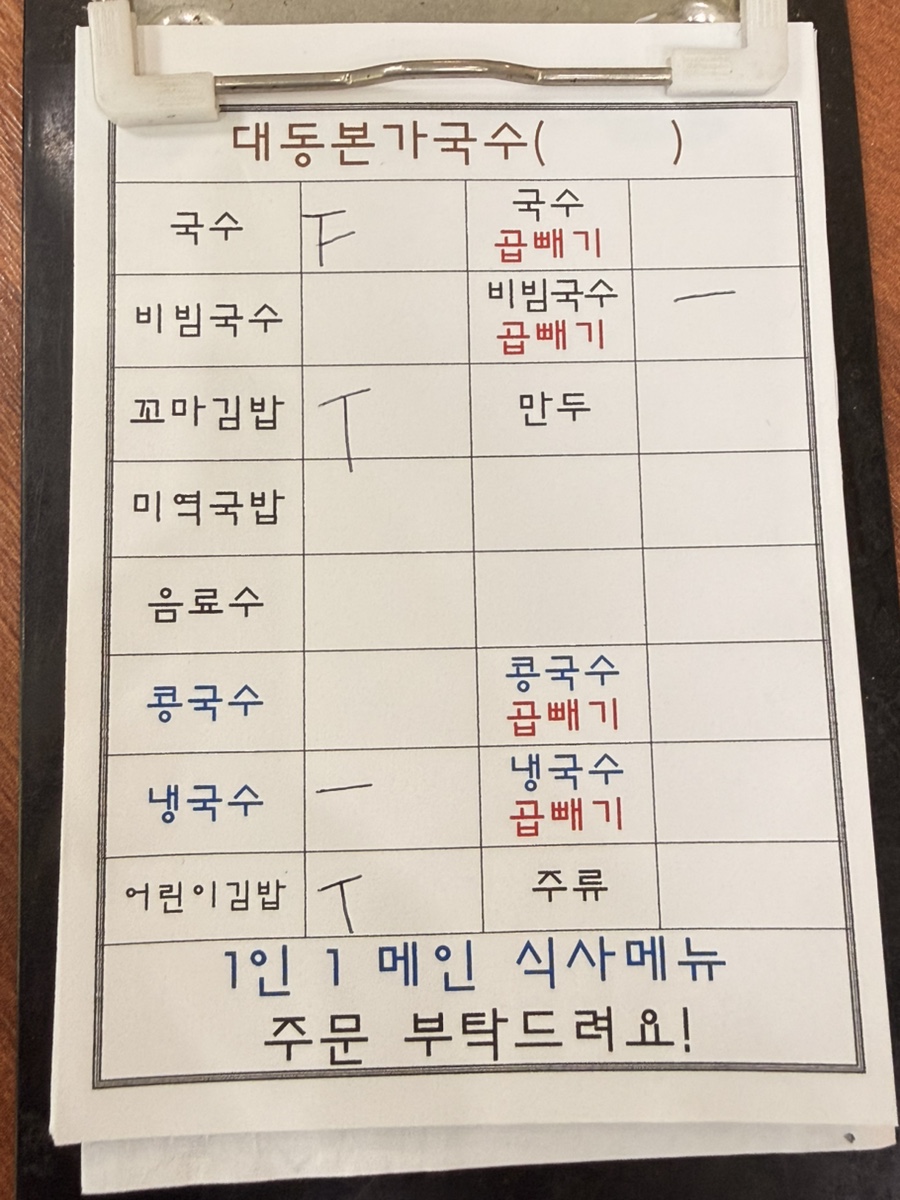 대동본가국수( )
국수 국수 곱빼기
비빔국수 비빔국수 곱빼기 一
꼬마김밥 만두
미역국밥
음료수
콩국수 콩국수 곱빼기
냉국수 一 냉국수 곱빼기
어린이김밥 주류
1인 1 메인 식사메뉴
주문 부탁드려요!